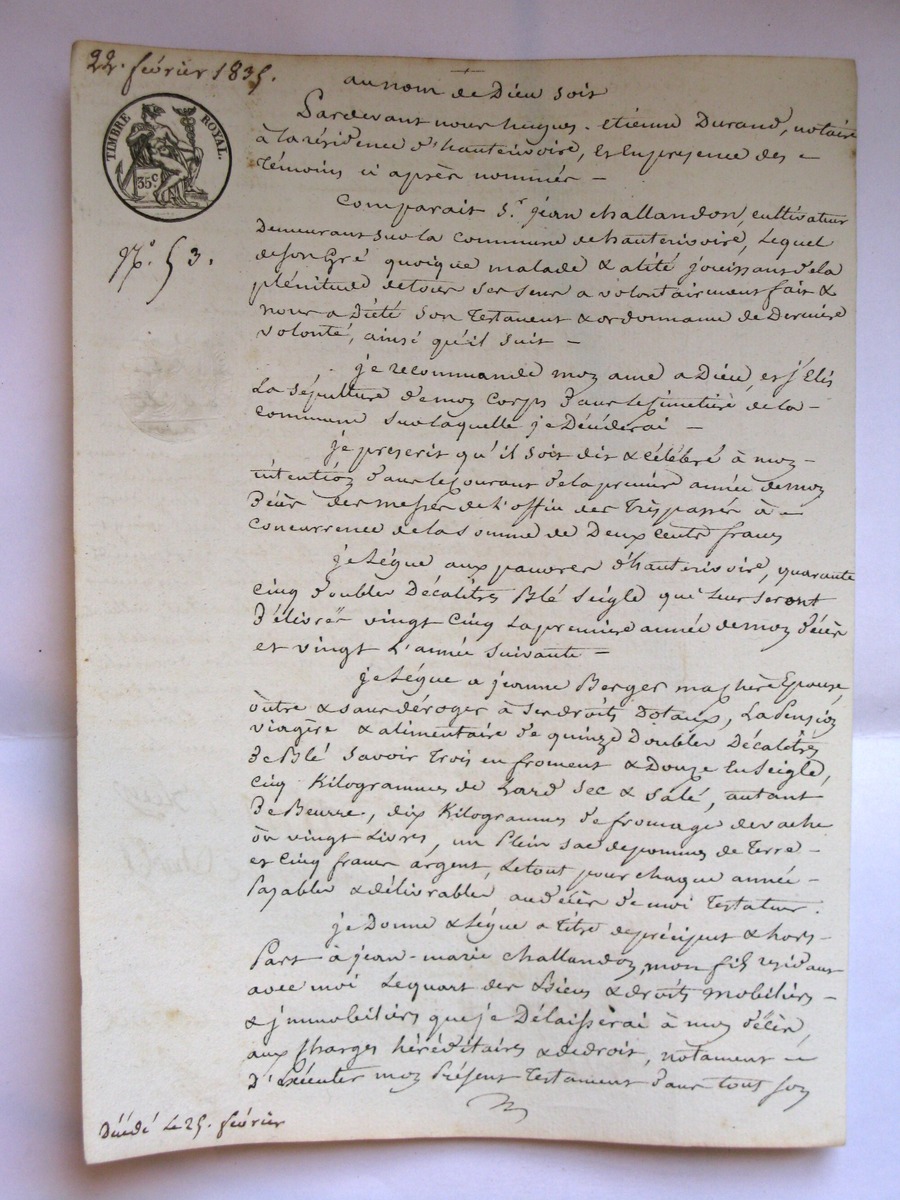 22. février 1835.
au nom de Dieu soit
TIMBRE ROYAL.
35c
Pardevant nous hugues-etienne Durand, notaire
à la résidence d'hauterivoire, & en presence des
témoins ci après nommés
N°. 53.
Comparait Sr. jean challandon, cultivateur
demeurant sur la commune de hauterivoire, Lequel
de son Gré quoique malade & alité jouissant de la
plénitude de tous ses sens a volontairement fait &
nous a Dicté son Testament & ordonnance de Derniere
volonté, ainsi qu'il suit
je recommande mon ame a Dieu, et j'élis
La sépulture de mon Corps dans le Cimetière de la
commune sur laquelle je Décéderai
je prescrit qu'il soit dit & célébré à mon
intention dans le Courant de la premier année de mon
décès des messes de l'office des Trépassés à
concurrence de la somme de Deux Cents francs
je Lègue aux pauvres d'hauterivoire, quarante
cinq doubles Décalitres Blé seigle qui Leur seront
délivrés vingt cinq La premiere année de mon décès
et vingt L'année suivante
je Lègue a jeanne Berger ma chère Epouse,
outre & sans déroger à ses droits Dotaux, La Pension
viagère & alimentaire de quinze Doubles Décalitres
de Blé savoir Trois en froment & Douze En Seigle,
cinq Kilogrammes de Lard sec & salé, autant
de Beurre, dix Kilogrammes de fromage de vache
ou vingt Livres, un Plein sac de pommes de Terre
et Cinq francs argent, Le tout pour chaque année
Payables & délivrables au décès de moi Testateur.
je Donne & Lègue a titre de préciput & hors
Part à jean-marie challandon, mon fils résidant
avec moi Le quart des Biens & droits mobiliers
& jmmobiliers que je Délaisserai à mon décès,
aux Charges héréditaires & de droit, notament
d'Exécuter mon Présent Testament dans tout son
Décédé Le 25. février